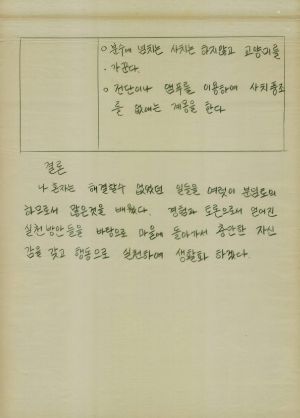 ○ 분수에 넘치는 사치는 하지않고 교양미를
가꾼다.
○ 전단이나 벽보를 이용하여 사치풍조
를 없애는 계몽을 한다
결론
나 혼자는 해결할수 없었던 일들을 여럿이 분임토의
하므로서 많은것을 배웠다. 경험과 토론으로서 얻어진
실천방안들을 바탕으로 마을에 돌아가서 충만한 자신
감을 갖고 행동으로 실천하여 생활화 하겠다.